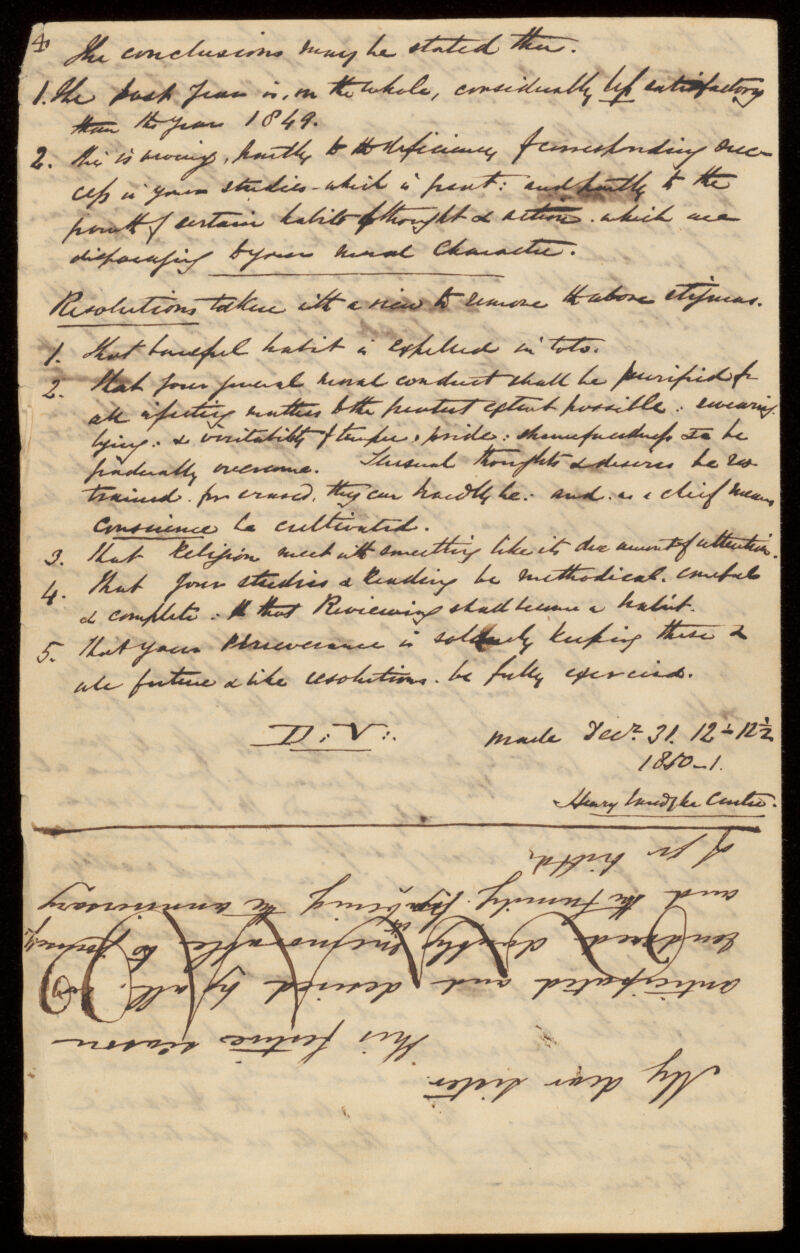 4
The conclusions may be stated thus.
1. The past year is, on the whole, considerably less satisfactory
than the year 1849.
2. This is owing, partly to the deficiency of corresponding suc-
cess in your studies - which is great: and partly to the
growth of certain habits of thought & action. which are
disparaging to your moral character.
Resolutions taken with a view to remove the above stigmas.
1. That baneful habit is expelled in toto.
2. That your general moral conduct shall be purified &
all affecting matters to the greatest extent possible: swearing
lying: & irritability of temper, pride: shamefacedness to be
gradually overcome. Sensual thoughts & desires be res-
trained. for erased, they can hardly be: and. as a chief means
Conscience be cultivated.
3. That Religion meet with something like its due amount of attention.
4. That your studies & Reading be methodical. careful
& complete: & that Reviewing shall become a habit.
5. That your Perseverance in solemnly keeping these &
all future & like resolutions. be fully exercised.
D:V:.
made Decr. 31. 12 - 12 1/2
1850-1.
Henry Vandyke Carter.
My dear sister.
this festive season
anticipated and desired by all. is
rendered doubly memorable to yourself
and the family by its being the anniversary
of yr birthd.